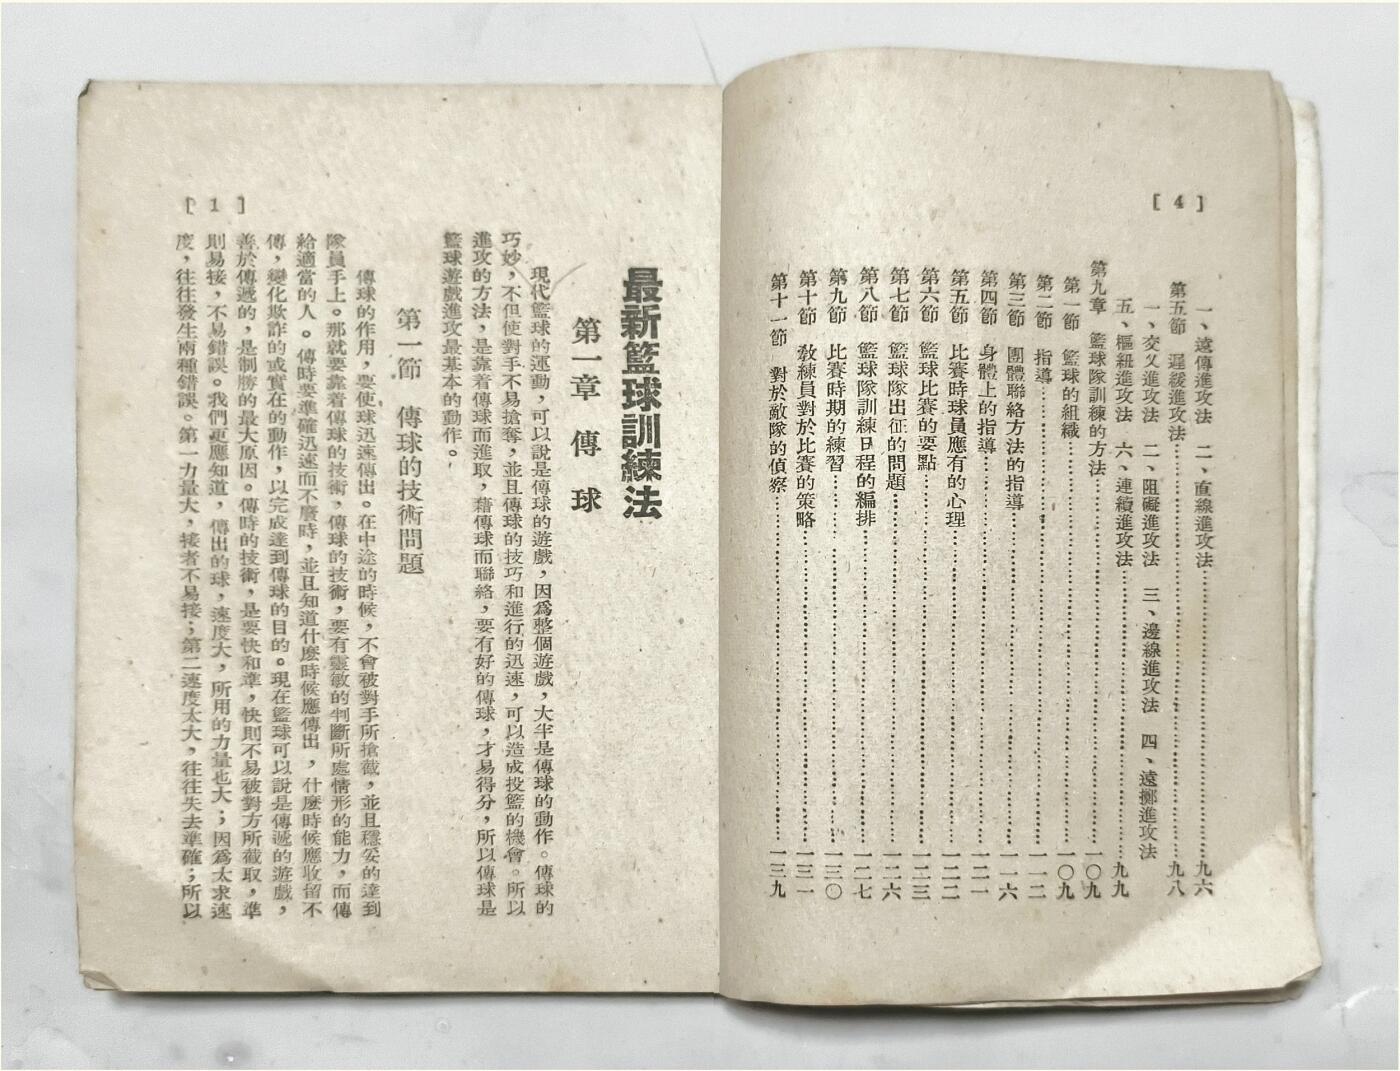 [ 4 ]
一、遠傳進攻法　二、直線進攻法……九六
第五節　遲緩進攻法……九八
一、交叉進攻法　二、阻礙進攻法　三、邊線進攻法　四、遠擲進攻法
五、樞紐進攻法　六、連續進攻法……九九
第九章　籃球隊訓練的方法……一〇九
第一節　籃球的組織……一〇九
第二節　指導……一一二
第三節　團體聯絡方法的指導……一一六
第四節　身體上的指導……一二一
第五節　比賽時球員應有的心理……一二二
第六節　籃球比賽的要點……一二三
第七節　籃球隊出征的問題……一二六
第八節　籃球隊訓練日程的編排……一二七
第九節　比賽時期的練習……一三〇
第十節　敎練員對於比賽的策略……一三一
第十一節　對於敵隊的偵察……一三九
[ 1 ]
最新籃球訓練法
第一章　傳　球
現代籃球的運動，可以說是傳球的遊戲，因爲整個遊戲，大半是傳球的動作。傳球的
巧妙，不但使對手不易搶奪，並且傳球的技巧和進行的迅速，可以造成投籃的機會。所以
進攻的方法，是靠着傳球而進取，藉傳球而聯絡，要有好的傳球，才易得分，所以傳球是
籃球遊戲進攻最基本的動作。
第一節　傳球的技術問題
傳球的作用，要使球迅速傳出。在中途的時候，不會被對手所搶截，並且穩妥的達到
隊員手上。那就要靠着傳球的技術，傳球的技術，要有靈敏的判斷所處情形的能力，而傳
給適當的人。傳時要準確迅速而不廢時，並且知道什麼時候應傳出，什麼時候應收留不
傳，變化欺詐的或實在的動作，以完成達到傳球的目的。現在籃球可以說是傳遞的遊戲，
善於傳遞的，是制勝的最大原因。傳時的技術，是要快和準，快則不易被對方所截取，準
則易接，不易錯誤。我們更應知道，傳出的球，速度大，所用的力量也大；因爲太求速
度，往往發生兩種錯誤。第一力量大，接者不易接；第二速度太大，往往失去準確；所以